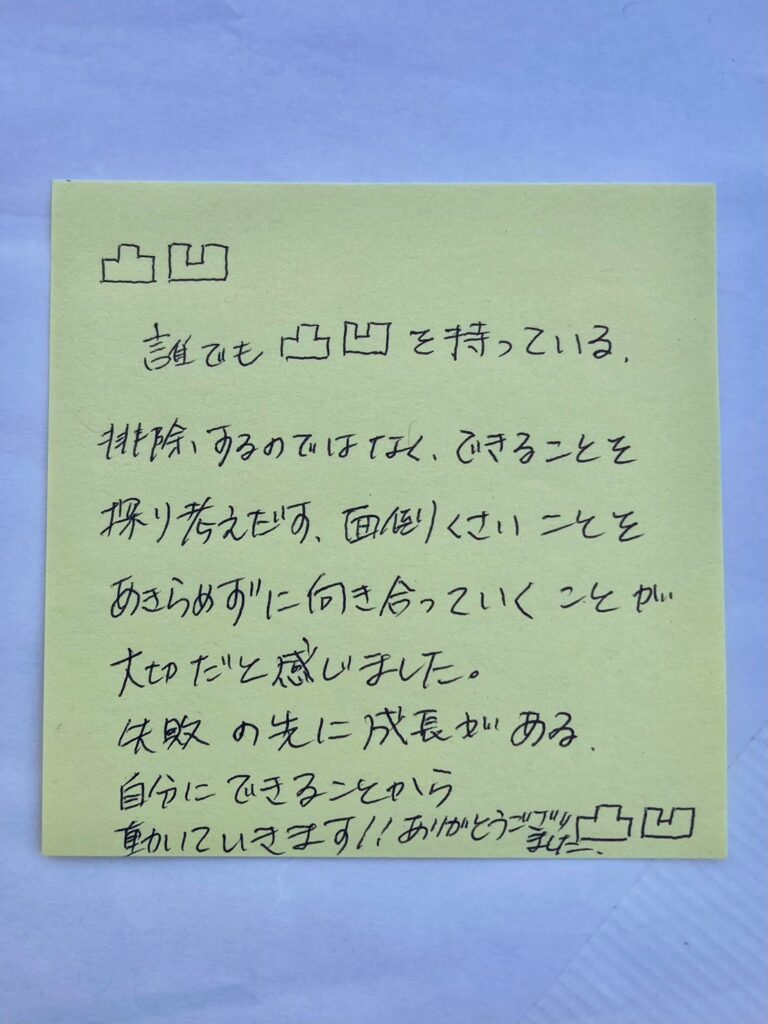 凸凹
誰でも凸凹を持っている.
排除するのではなく、できることを
探り考えだす、面倒くさいことを
あきらめずに向き合っていくことが
大切だと感じました。
失敗の先に成長がある.
自分にできることから
動いていきます!!ありがとうございました.凸凹